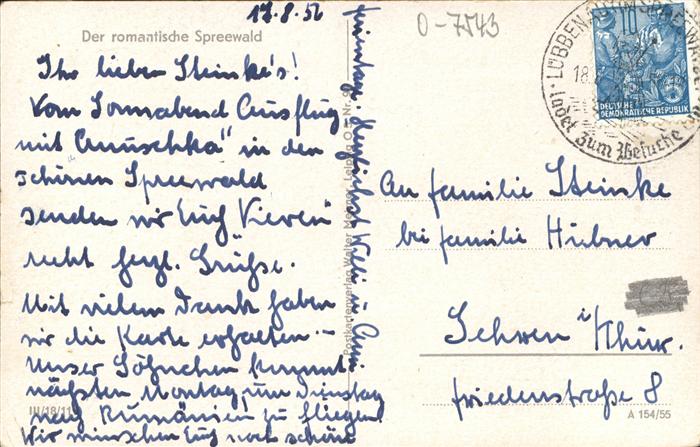 17.8.56
O-7543
Der romantische Spreewald
Ihr lieben Steinke's!
Vom Sonnabend Ausflug
mit „Anuschka" in den
schönen Spreewald
senden wir Euch Vieren
recht herzl. Grüße.
Mit vielem Dank haben
wir die Karte erhalten. –
Unser Söhnchen kommt
nächsten Montag, um Dienstag
nach Rumänien zu fliegen!
Wir wünschen Euch noch schöne
Ferientage. Herzlichst Willi u. Anni
III/18/11
Postkartenverlag Walter Leipzig O
LÜBBEN
SPREEWALD
18.8.
ladet zum Besuche
10
DEUTSCHE
DEMOKRATISCHE REPUBLIK
An Familie Steinke
bei Familie Hübner
i/Thür.
Friedenstraße 8
A 154/55